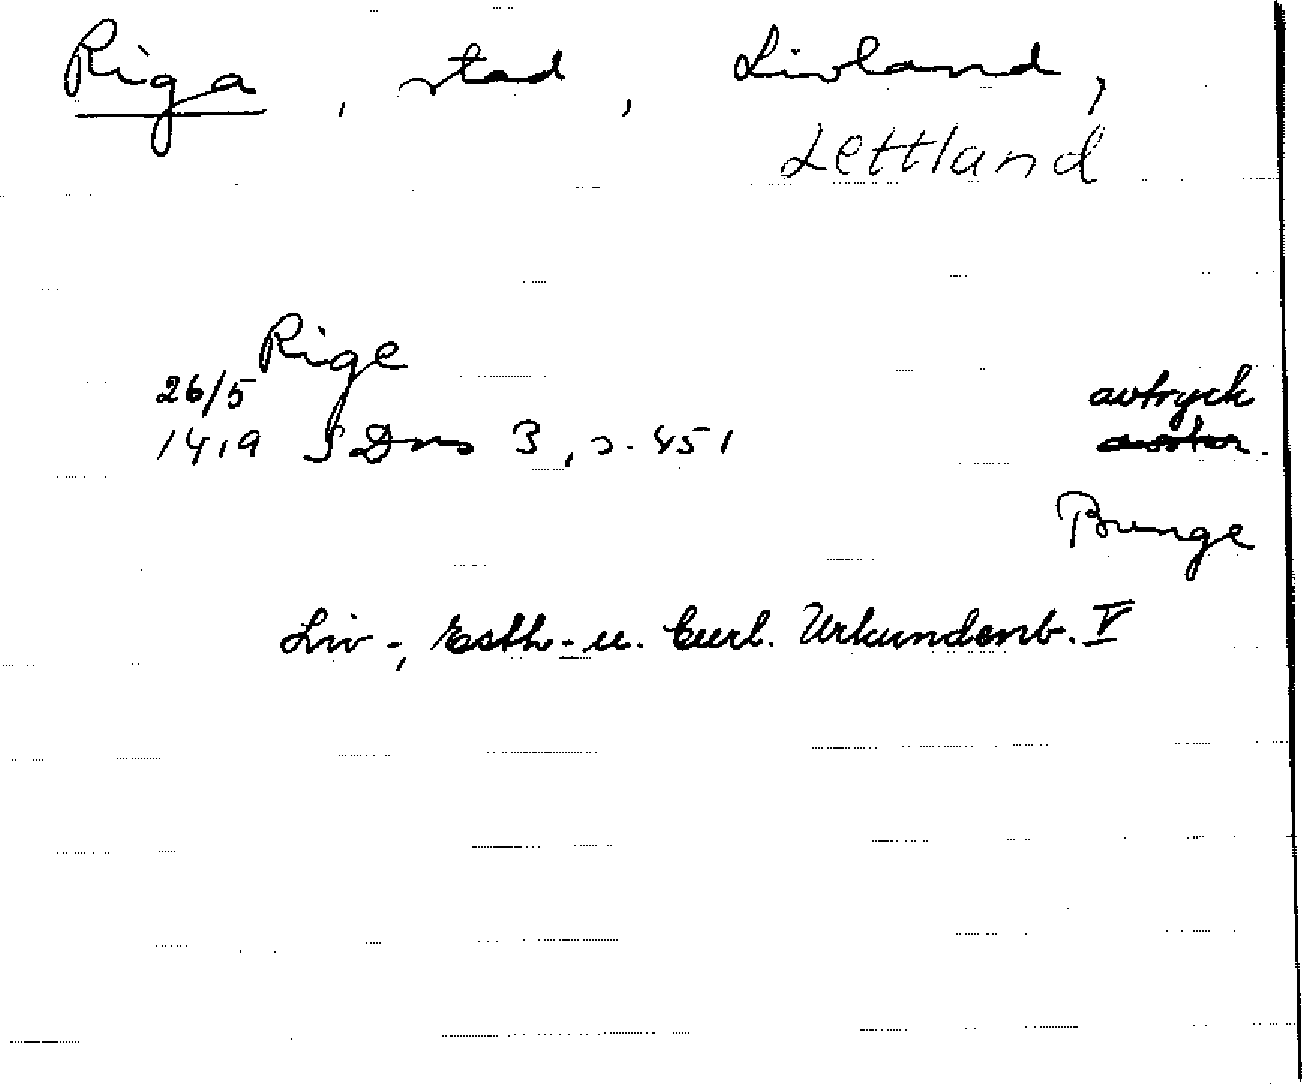 Riga, stad, Livland,
Lettland
Rige
26/5 avtryck
1419 SDns 3, s. 451
Bunge
Liv-, Esth- u. Curl. Urkundenb. V